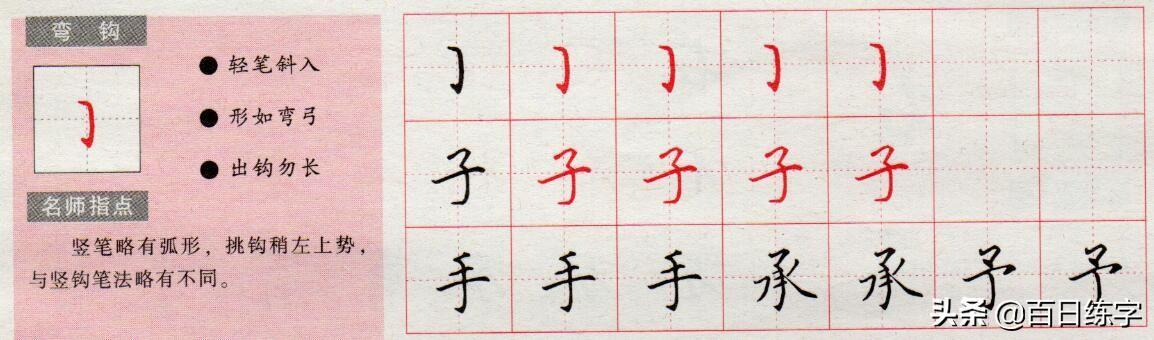 弯 钩
轻笔斜入
形如弯弓
出钩勿长
名师指点
竖笔略有弧形，挑钩稍左上势，
与竖钩笔法略有不同。
子 子 子 子 子
手 手 手 承 承 予 予
头条 @百日练字